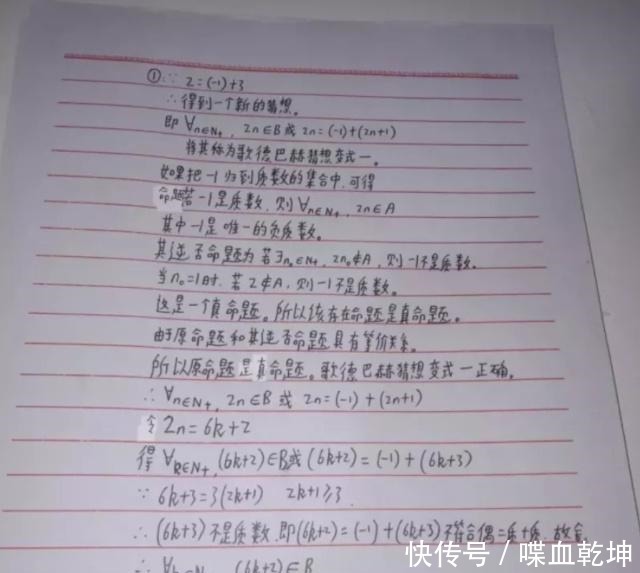 ①∵ 2=(-1)+3
∴得到一个新的猜想。
即 ∀n∈N₊, 2n∈B 或 2n=(-1)+(2n+1)
将其称为歌德巴赫猜想变式一。
如果把-1归到质数的集合中,可得
命题若-1是质数,则∀n∈N₊, 2n∈A
其中-1是唯一的负质数。
其逆否命题为若∃n₀∈N₊, 2n₀∉A,则-1不是质数.
当n₀=1时,若2∉A,则-1不是质数。
这是一个真命题。所以该存在命题是真命题。
由于原命题和其逆否命题具有等价关系。
所以原命题是真命题。歌德巴赫猜想变式一正确。
∴ ∀n∈N₊, 2n∈B 或 2n=(-1)+(2n+1)
令2n=6k+2
得 ∀k∈N₊, (6k+2)∈B或(6k+2)=(-1)+(6k+3)
∵ 6k+3=3(2k+1) 2k+1≥3.
∴ (6k+3)不是质数.即(6k+2)=(-1)+(6k+3)不符合偶=质+质.故舍.
∴ (6k+2)∈B
快传号/喋血乾坤